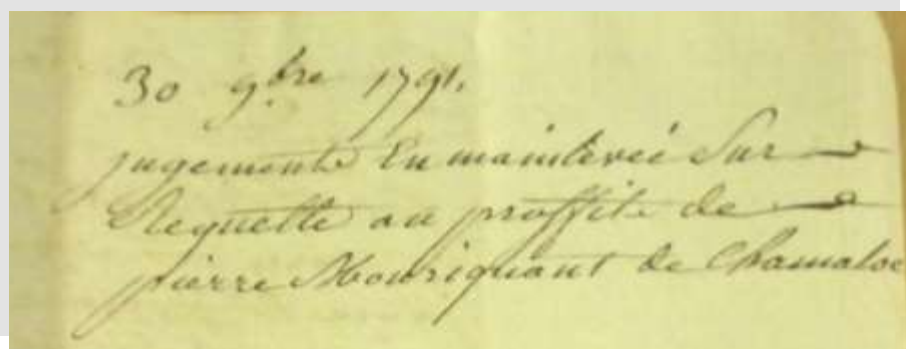 30 9bre 1791.
jugement En mainlevée Sur
Requette au proffit de
pierre Mouriquant de Chamaloc